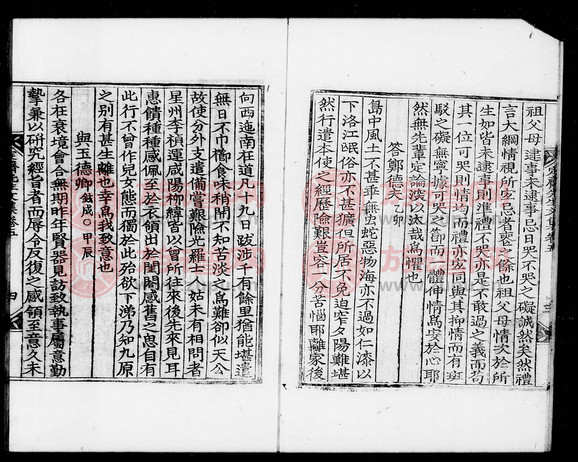 祖父母逮事未逮事忌日哭不哭之礙誠然矣然禮
言大綱情視所宜忌者喪之餘也祖父母情次於所
生如皆未逮事則準禮不哭亦是不敢過之義而苟
其一位可哭則情亦宜同與其抑情而有斑
駁之礙無寧據可哭之節而一體伸情爲次於心耶
然無先輩定論淡以汰哉爲懼也
答鄭德夫乙卯
島中風土不甚乖無虫蛇惡物海亦不過如仁漆以
下洛江民俗亦不甚獷但所居不免迫窄夕陽難堪
然行遣本使之經歷險難豈容一分苦惱耶離家後
向西迤南在道凡十九日跋涉千有餘里猶能堪遣
無日不巾櫛食味稍閒不知苦淡之爲難却似天公
故使分外支遣備嘗艱險光羅士姑未有相問者
星州李楨運咸陽柳緯皆以曾所往來後先來見耳
惠饋種種感佩至於衣領出於閨閤感舊之思自有
此行不曾作兒女態而獨於此殆欲下涕乃知九原
之別有甚生離也幸爲我致意也
與玉德卿 甲辰
各在衰境會合無期昨年賢器見訪致執事屬意勤
摯兼以硏究經旨者而辱令反復之感領至意久未
四